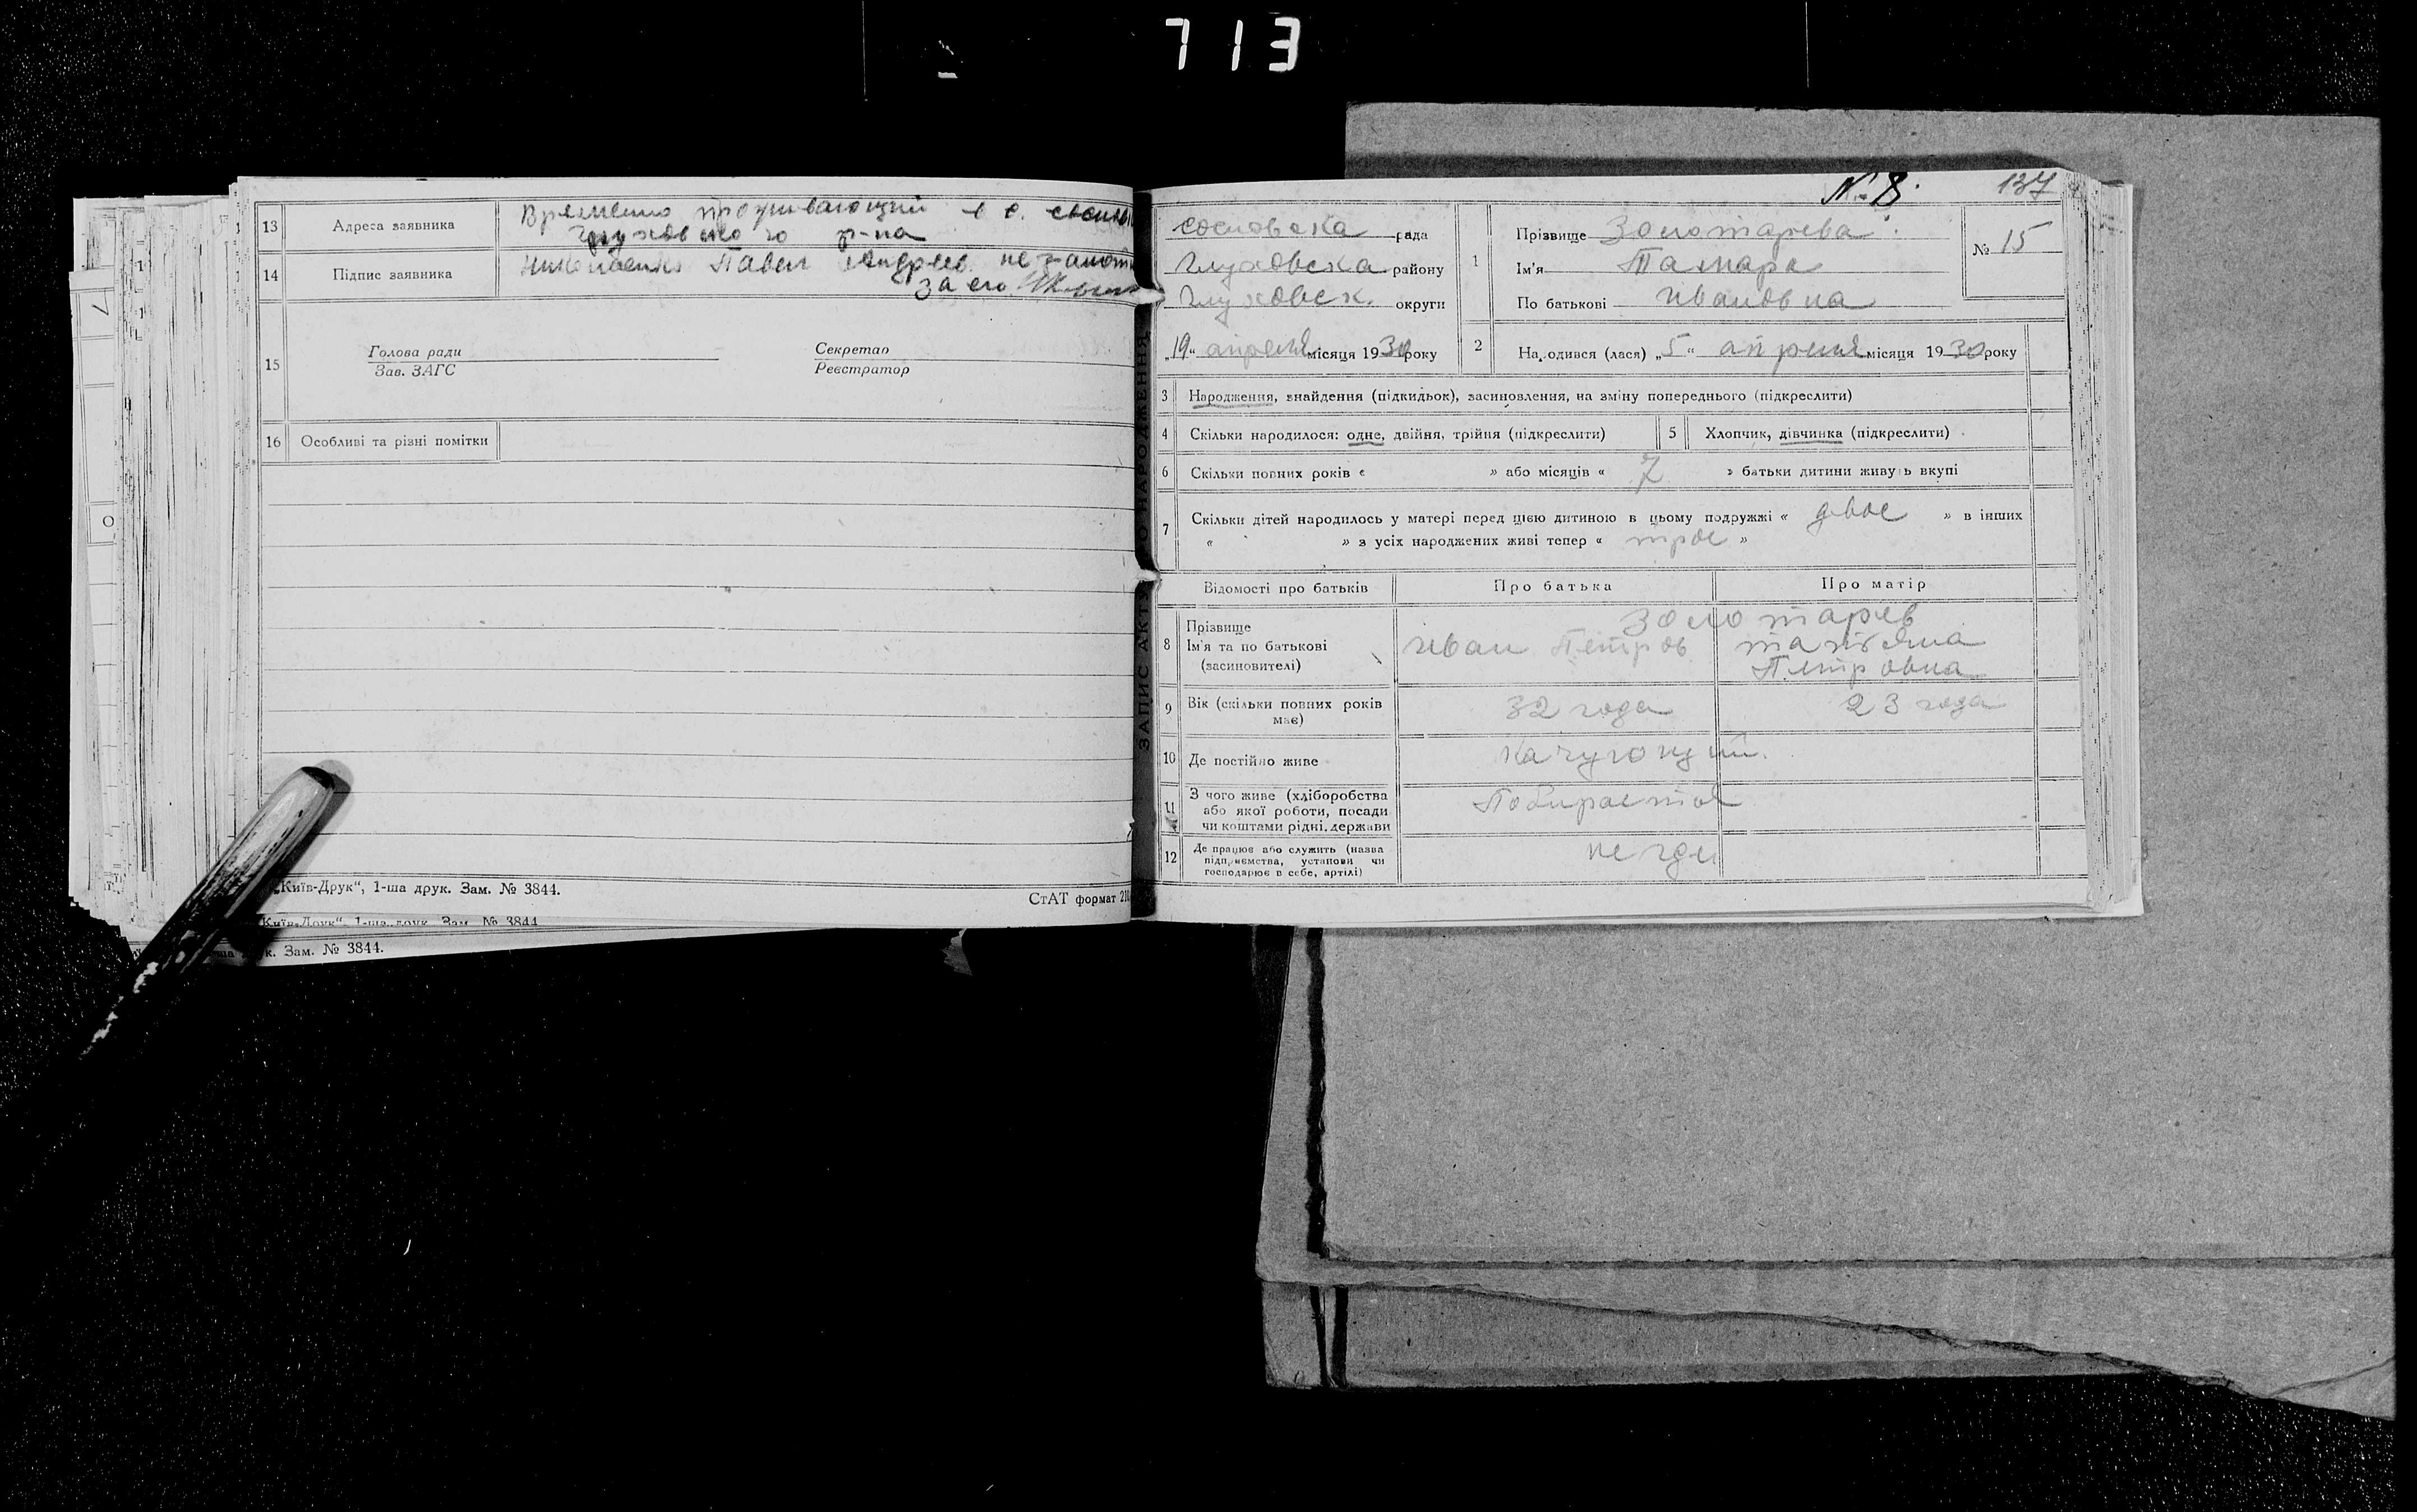 713
13 Адреса заявника Временно проживающий в с.
Глуховского р-на
14 Підпис заявника Павел Андреев. не
за его
15 Голова ради Секретар
Зав. ЗАГС Реєстратор
16 Особливі та різні помітки
„Київ-Друк“, 1-ша друк. Зам. № 3844.
СтАТ формат 210
Київ-Друк“, 1-ша друк. Зам. № 3844
ша друк. Зам. № 3844.
ЗАПИС АКТУ ПРО НАРОДЖЕННЯ
№ 8. 137
сосновска рада
Глуховска району
Глуховск. округи
„19“ апреля місяця 1930 року
1 Прізвище Золотарева
Ім'я Тамара
По батькові Ивановна
№ 15
2 Народився (лася) „5“ апреля місяця 1930 року
3 Народження, знайдення (підкидьок), засиновлення, на зміну попереднього (підкреслити)
4 Скільки народилося: одне, двійня, трійня (підкреслити) 5 Хлопчик, дівчинка (підкреслити)
6 Скільки повних років « » або місяців « 7 » батьки дитини живуть вкупі
7 Скільки дітей народилось у матері перед цією дитиною в цьому подружжі « двое » в інших
« » з усіх народжених живі тепер « трое »
Відомості про батьків Про батька Про матір
8 Прізвище Золотарев
Ім'я та по батькові Иван Петров татьяна
(засиновителі) Петровна
9 Вік (скільки повних років 32 года 23 года
має)
10 Де постійно живе Качующий.
11 З чого живе (хліборобства Побирается
або якої роботи, посади
чи коштами рідні, держави
12 Де працює або служить (назва не где
підприємства, установи чи
господарює в себе, артілі)